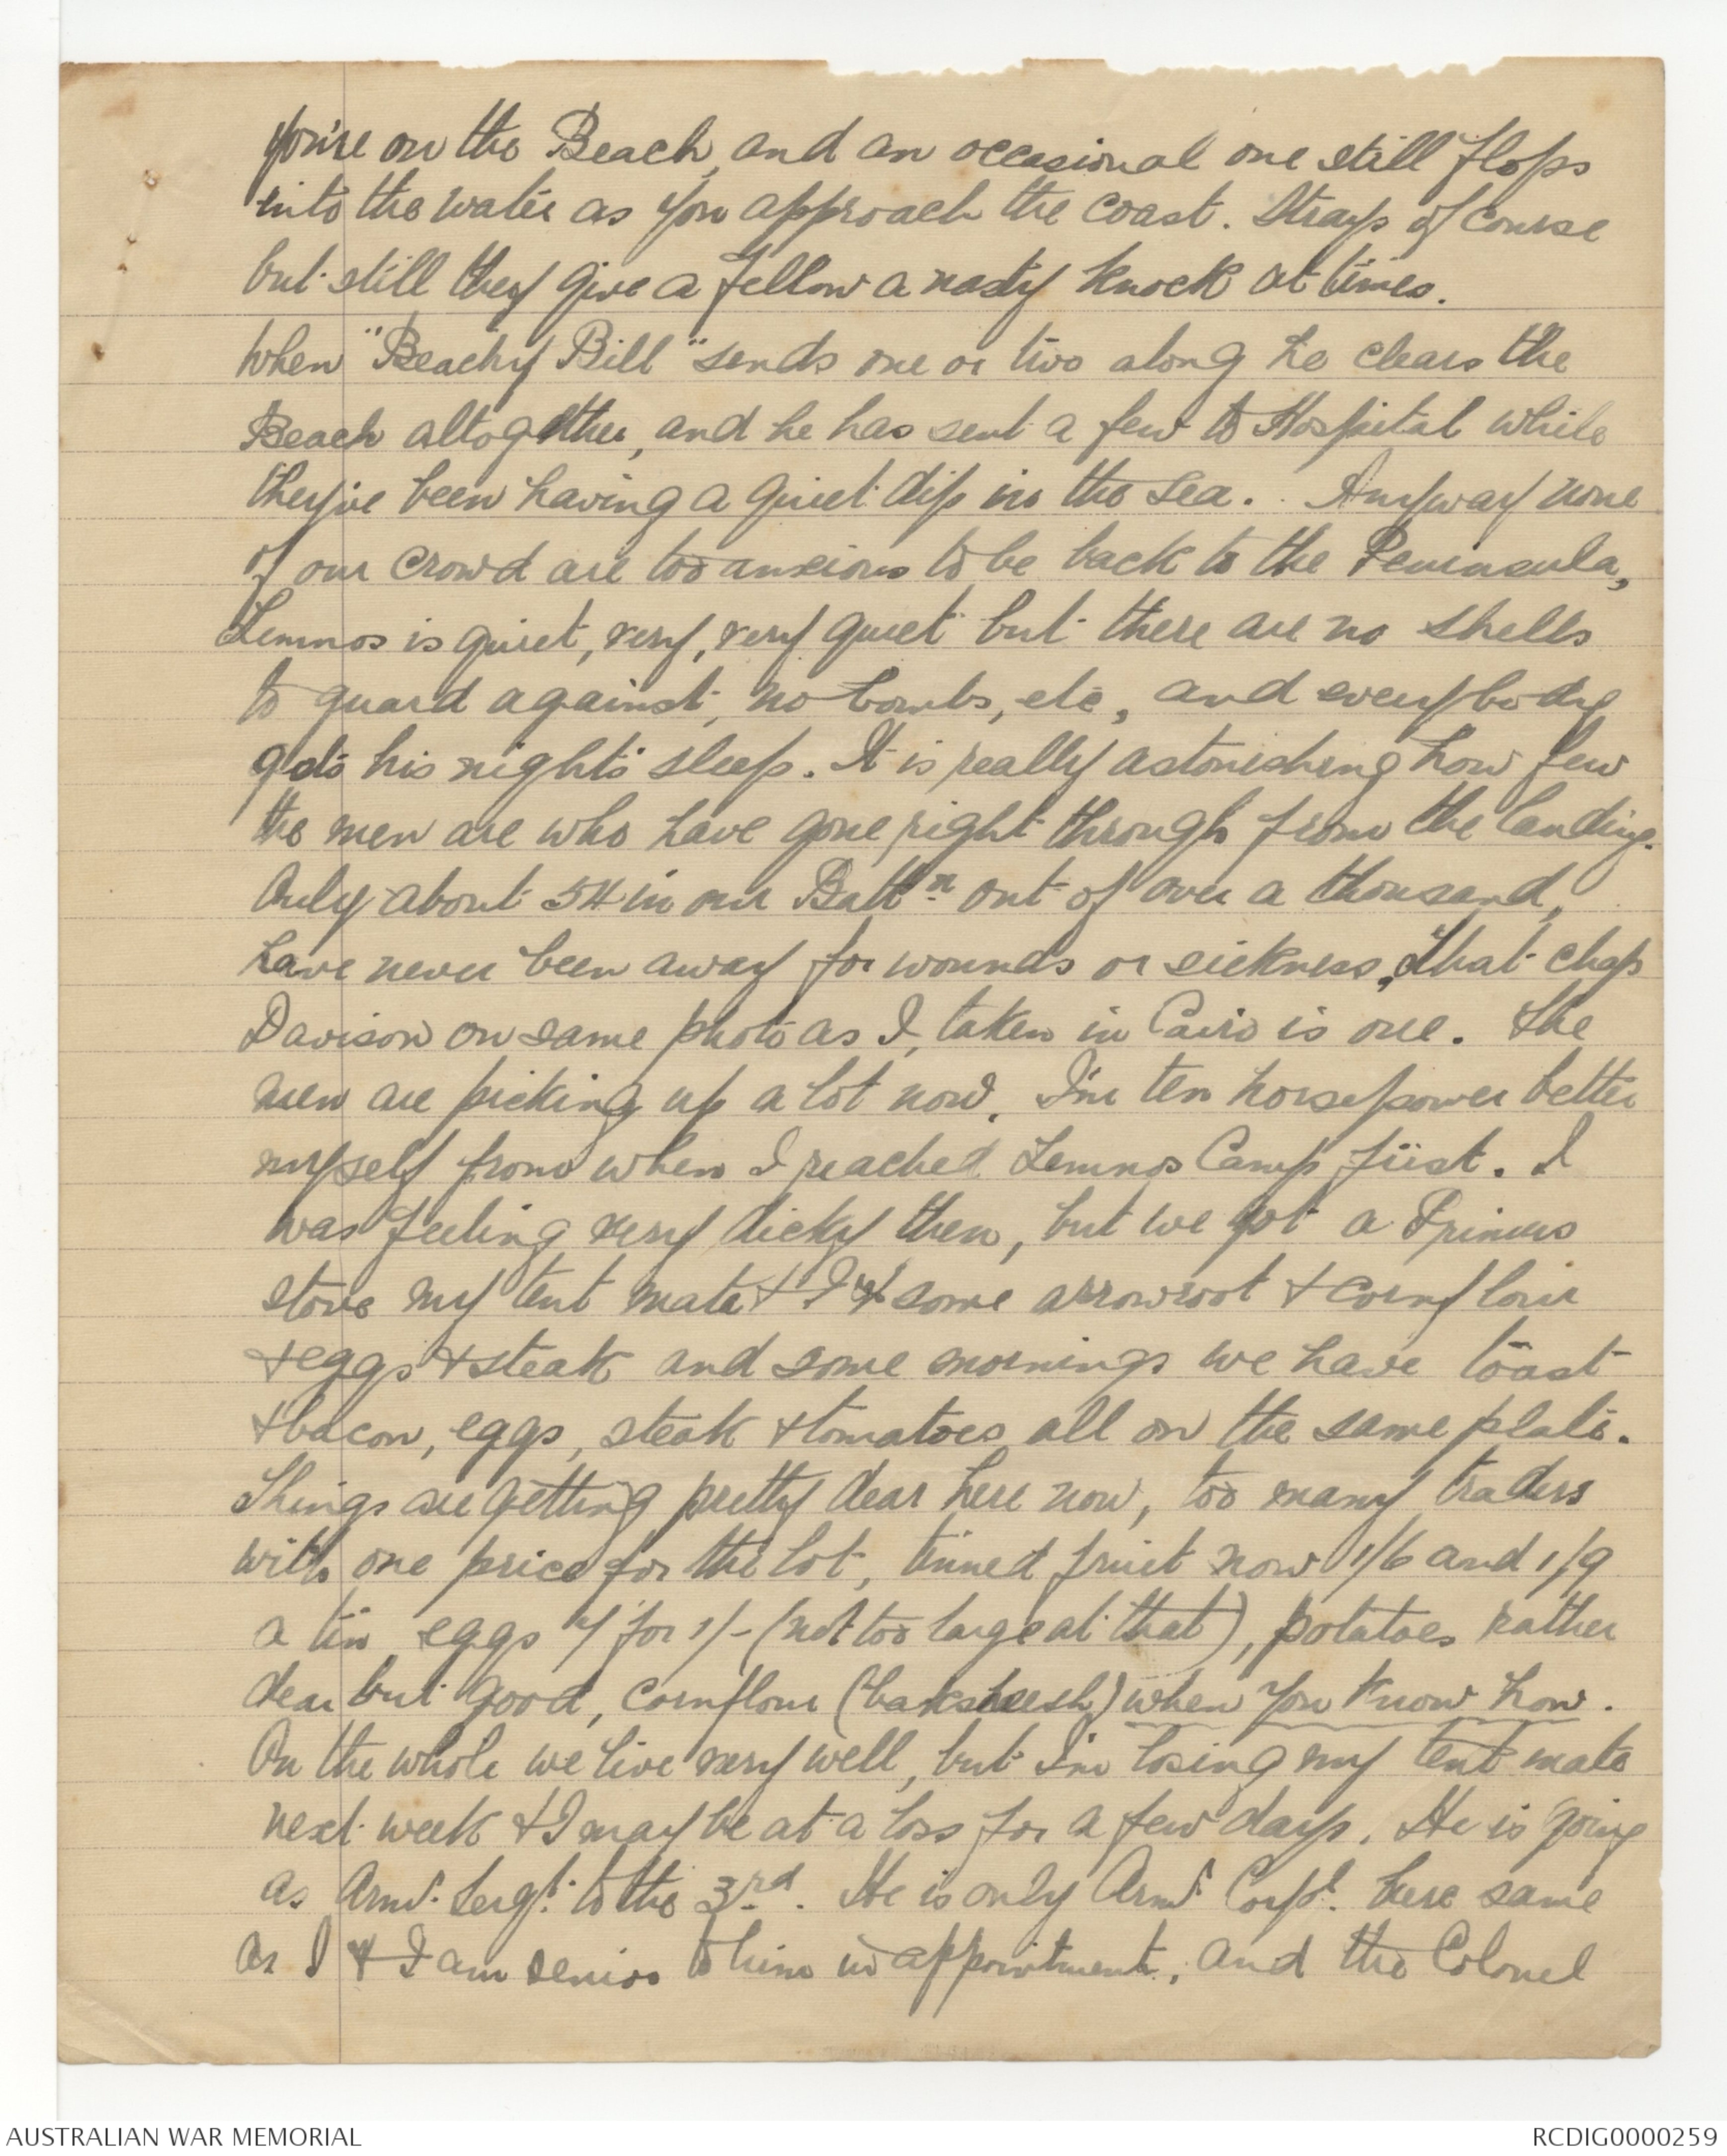 you're on the Beach, and an occasional one still flops
into the water as you approach the coast. Strays of course
but still they give a fellow a nasty knock at times.
When "Beachy Bill" sends one or two along he clears the
Beach altogether, and he has sent a few to Hospital while
they've been having a quiet dip in the sea. Anyway none
of our crowd are too anxious to be back to the Peninsula,
Lemnos is quiet, very, very quiet but there are no shells
to guard against, no bombs, etc, and everybody
gets his night's sleep. It is really astonishing how few
the men are who have gone right through from the landing.
Only about 54 in our Battn out of over a thousand,
have never been away for wounds or sickness. That chap
Davison on same photo as I, taken in Cairo is one. The
men are picking up a lot now. I'm ten horsepower better
myself from when I reached Lemnos Camp first. I
was feeling very dicky then, but we got a Primus
stove my tent mate & I & some arrowroot & cornflour
& eggs & steak and some mornings we have toast
& bacon, eggs, steak & tomatoes all on the same plate.
Things are getting pretty dear here now, too many traders
with one price for the lot, tinned fruit now 1/6 and 1/9
a tin eggs 7 for 1/- (not too large at that), potatoes rather
dear but good, cornflour (baksheesh) when you know how.
On the whole we live very well, but I'm losing my tent mate
next week & I may be at a loss for a few days. He is going
as Armr. Sergt. to the 3rd. He is only Armr Corpl. here same
as I & I am senior to him in appointment, and the Colonel
AUSTRALIAN WAR MEMORIAL
RCDIG0000259